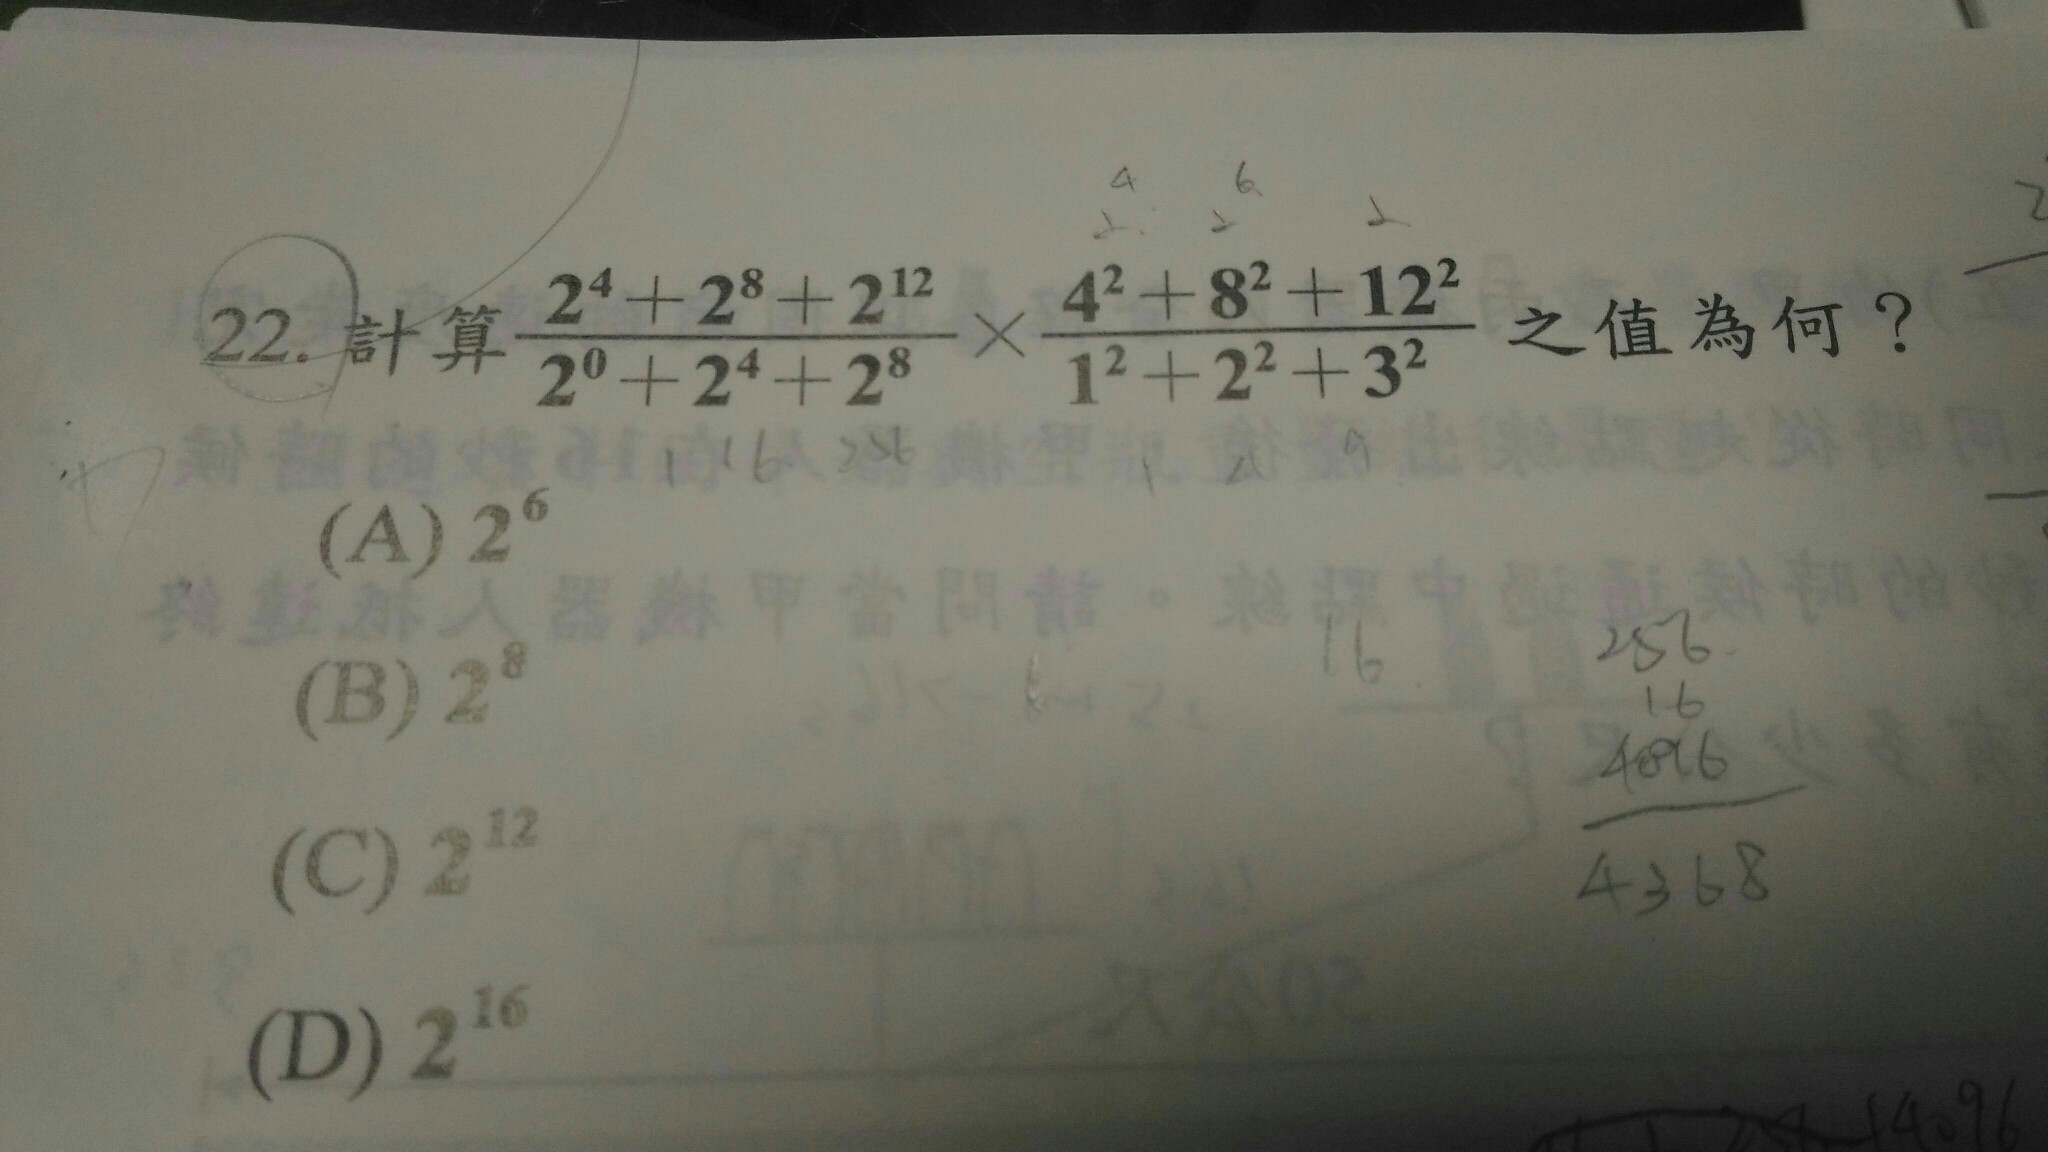 4 6
2 2 2
22. 計算 (2⁴+2⁸+2¹²)/(2⁰+2⁴+2⁸) × (4²+8²+12²)/(1²+2²+3²) 之值為何？
1 16 256 1 4 9
(A) 2⁶
(B) 2⁸
(C) 2¹²
(D) 2¹⁶
16
256
16
4096
4368
4096